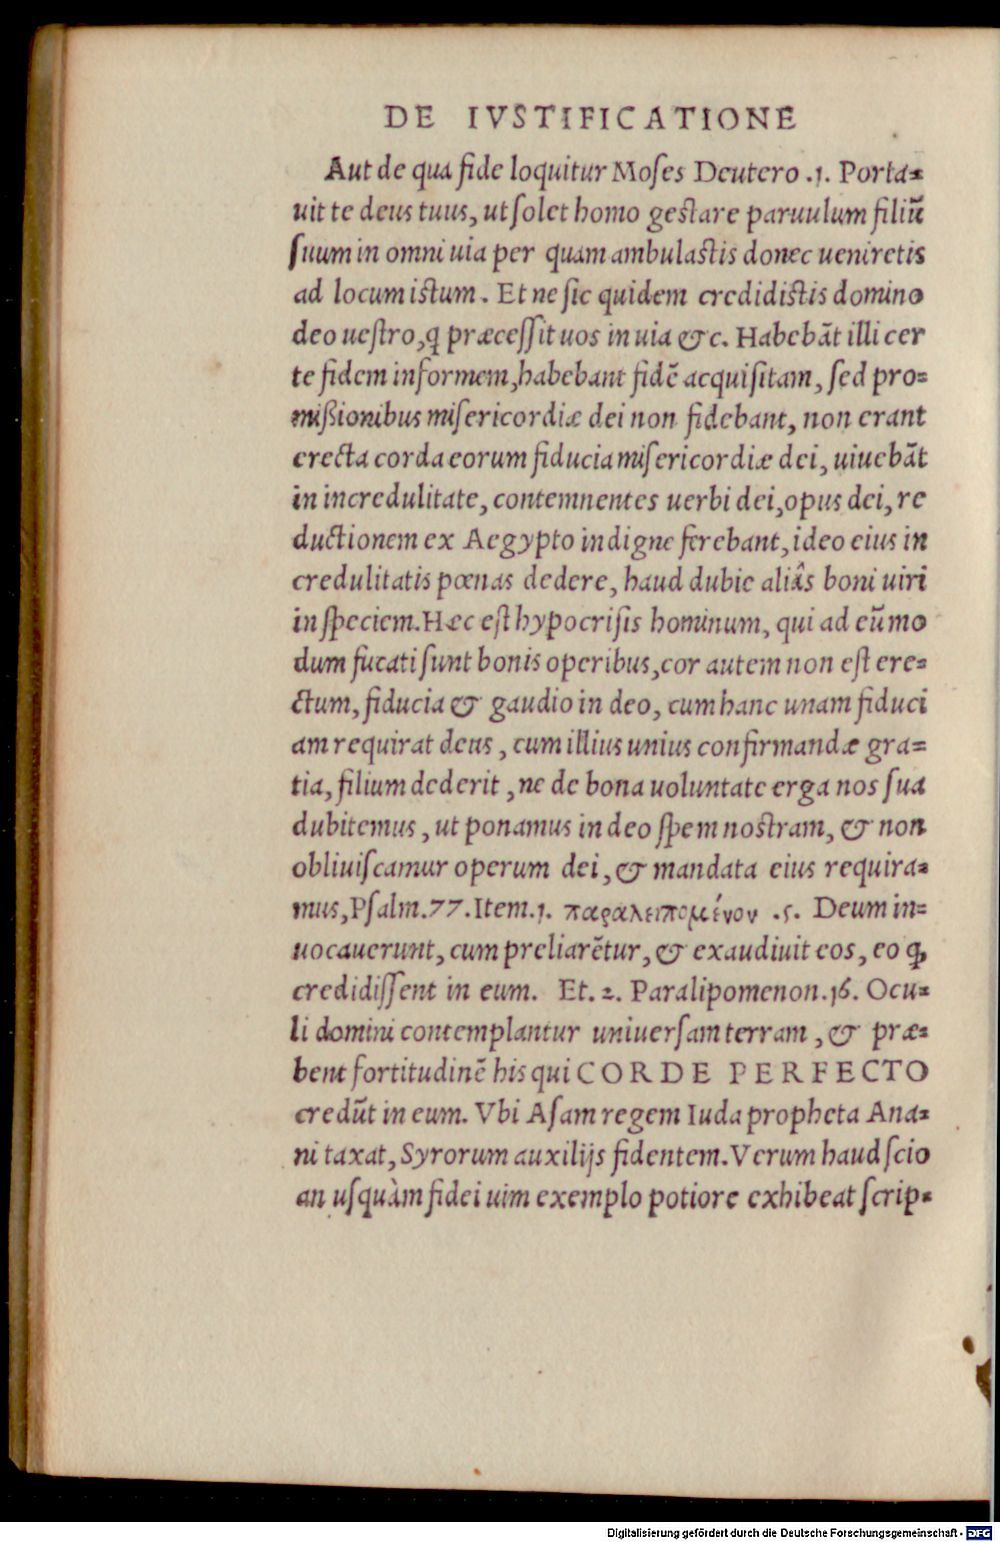 DE IVSTIFICATIONE
Aut de qua fide loquitur Moses Deutero .1. Porta=
uit te deus tuus, ut solet homo gestare paruulum filiū
suum in omni uia per quam ambulastis donec ueniretis
ad locum istum. Et ne sic quidem credidistis domino
deo uestro, q præcessit uos in uia & c. Habebāt illi cer
te fidem informem, habebant fidē acquisitam, sed pro=
mißionibus misericordiæ dei non fidebant, non erant
erecta corda eorum fiducia misericordiæ dei, uiuebāt
in incredulitate, contemnentes uerbi dei, opus dei, re
ductionem ex Aegypto indigne ferebant, ideo eius in
credulitatis pœnas dedere, haud dubie aliâs boni uiri
in speciem. Hæc est hypocrisis hominum, qui ad eūmo
dum fucati sunt bonis operibus, cor autem non est ere=
ctum, fiducia & gaudio in deo, cum hanc unam fiduci
am requirat deus, cum illius unius confirmandæ gra=
tia, filium dederit, ne de bona uoluntate erga nos sua
dubitemus, ut ponamus in deo spem nostram, & non
obliuiscamur operum dei, & mandata eius requira=
mus, Psalm.77. Item.1. παραλειπομένον .5. Deum in=
uocauerunt, cum preliarētur, & exaudiuit eos, eo ꝙ
credidissent in eum. Et. 2. Paralipomenon.16. Ocu=
li domini contemplantur uniuersam terram, & præ=
bent fortitudinē his qui CORDE PERFECTO
credūt in eum. Vbi Asam regem Iuda propheta Ana=
ni taxat, Syrorum auxilijs fidentem. Verum haud scio
an usquàm fidei uim exemplo potiore exhibeat scrip=
Digitalisierung gefördert durch die Deutsche Forschungsgemeinschaft - DFG